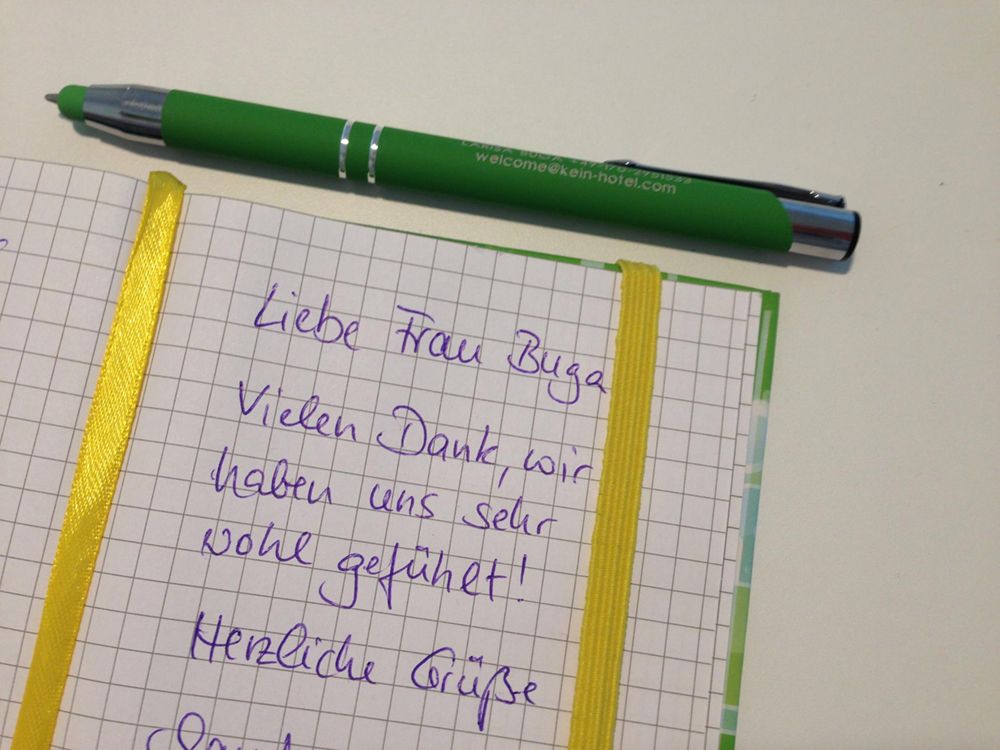 welcome@kein-hotel.com
Liebe Frau Buga
Vielen Dank, wir
haben uns sehr
wohl gefühlt!
Herzliche Grüße